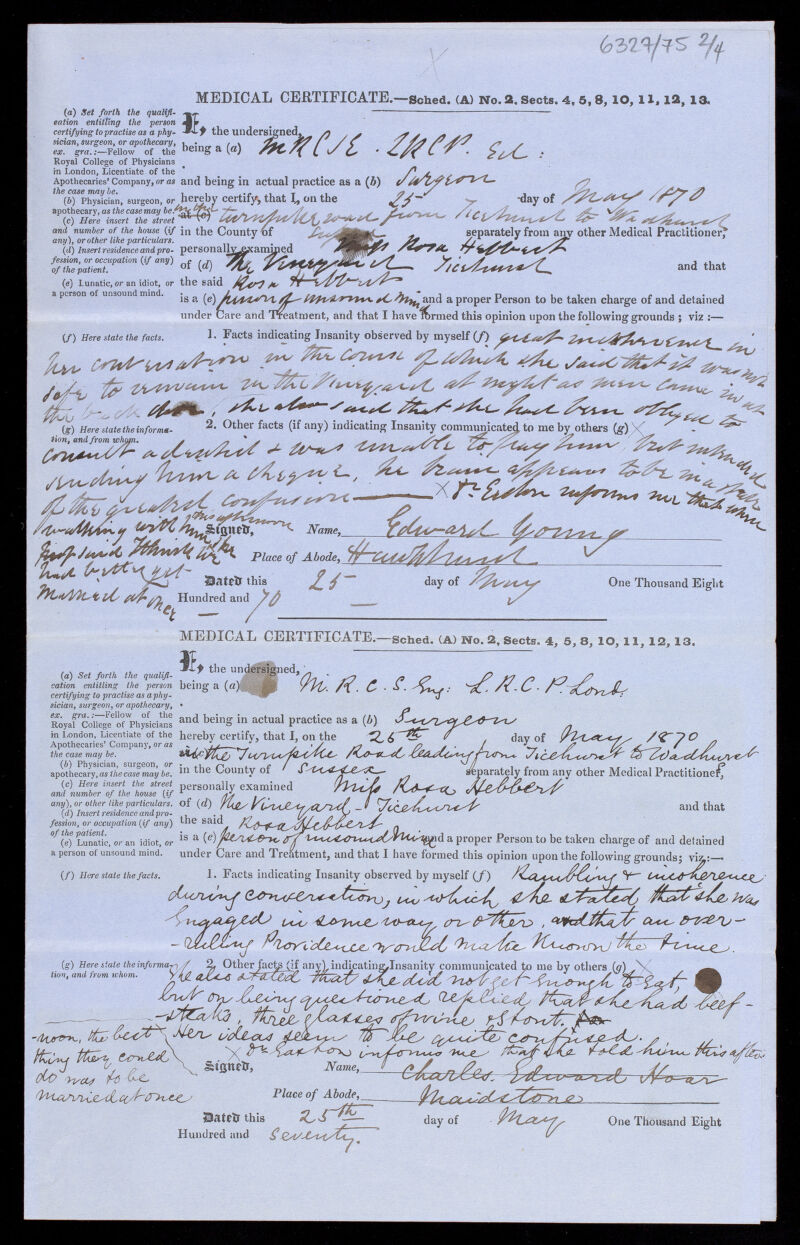 6327/75 2/4
MEDICAL CERTIFICATE.—Sched. (A) No. 2, Sects. 4, 5, 8, 10, 11, 12, 13.
(a) Set forth the qualifi-
cation entitling the person
certifying to practise as a phy-
sician, surgeon, or apothecary,
ex. gra.:—Fellow of the
Royal College of Physicians
in London, Licentiate of the
Apothecaries' Company, or as
the case may be.
(b) Physician, surgeon, or
apothecary, as the case may be.
(c) Here insert the street
and number of the house (if
any), or other like particulars.
(d) Insert residence and pro-
fession, or occupation (if any)
of the patient.
(e) Lunatic, or an idiot, or
a person of unsound mind.
I, the undersigned,
being a (a) MRCSE. LRCP. Ed:
and being in actual practice as a (b) Surgeon
hereby certify, that I, on the 25 day of May 1870
at (c) turnpike road from Ticehurst to Wadhurst
in the County of Sussex separately from any other Medical Practitioner,
personally examined Miss Rosa Hebbert
of (d) The Vineyard Ticehurst and that
the said Rosa Hebbert
is a (e) person of unsound mind and a proper Person to be taken charge of and detained
under Care and Treatment, and that I have formed this opinion upon the following grounds; viz:—
(f) Here state the facts.
1. Facts indicating Insanity observed by myself (f) great incoherence in
her conversation in the course of which she said that it was not
safe to remain in the Vineyard at night as men came in at
the back door, she also said that she had been obliged to
(g) Here state the informa-
tion, and from whom.
2. Other facts (if any) indicating Insanity communicated to me by others (g)
consult a dentist & was unable to pay him but intended
sending him a cheque, he brain appears to be in a state
of the greatest confusion — X Dr. Easton informs me that when
walking with him this afternoon
said I think we
had better get
married at once
Signed, Name, Edward Young
Place of Abode, Hawkhurst
Dated this 25 day of May One Thousand Eight
Hundred and 70
MEDICAL CERTIFICATE.—Sched. (A) No. 2, Sects. 4, 5, 8, 10, 11, 12, 13.
(a) Set forth the qualifi-
cation entitling the person
certifying to practise as a phy-
sician, surgeon, or apothecary,
ex. gra.:—Fellow of the
Royal College of Physicians
in London, Licentiate of the
Apothecaries' Company, or as
the case may be.
(b) Physician, surgeon, or
apothecary, as the case may be.
(c) Here insert the street
and number of the house (if
any), or other like particulars.
(d) Insert residence and pro-
fession, or occupation (if any)
of the patient.
(e) Lunatic, or an idiot, or
a person of unsound mind.
I, the undersigned,
being a (a) M.R.C.S. Eng: L.R.C.P. Lond:
and being in actual practice as a (b) Surgeon
hereby certify, that I, on the 25th day of May 1870
the Turnpike Road leading from Ticehurst to Wadhurst
in the County of Sussex separately from any other Medical Practitioner,
personally examined Miss Rosa Hebbert
of (d) The Vineyard - Ticehurst and that
the said Rosa Hebbert
is a (e) person of unsound Mind and a proper Person to be taken charge of and detained
under Care and Treatment, and that I have formed this opinion upon the following grounds; viz.:—
(f) Here state the facts.
1. Facts indicating Insanity observed by myself (f) Rambling & incoherence
during conversation, in which she stated, that she was
Engaged in some way or other, and that an over-
-ruling Providence would make known the time.
(g) Here state the informa-
tion, and from whom.
2. Other facts (if any) indicating Insanity communicated to me by others (g)
She also stated that she did not get enough to Eat,
but on being questioned replied that she had beef-
-steaks, three glasses of wine & Stout.
Her ideas seem to be quite confused.
X Dr Easton informs me that she told him this after
-noon, the best
thing they could
do was to be
married at once
Signed, Name, Charles Edward Hoar
Place of Abode, Maidstone
Dated this 25th day of May One Thousand Eight
Hundred and Seventy.